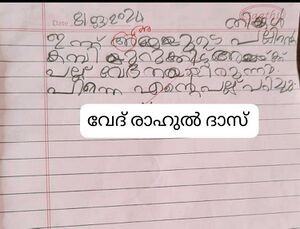 Date 8/03/2024
തിങ്കൾ
ഇന്ന് അമ്മയുടെ പല്ലിന്റെ
കമ്പി
പല്ല് വേദനയായിരുന്നു
പിന്നെ എന്റെ പല്ല് പറിച്ചു
വേദ് രാഹുൽ ദാസ്